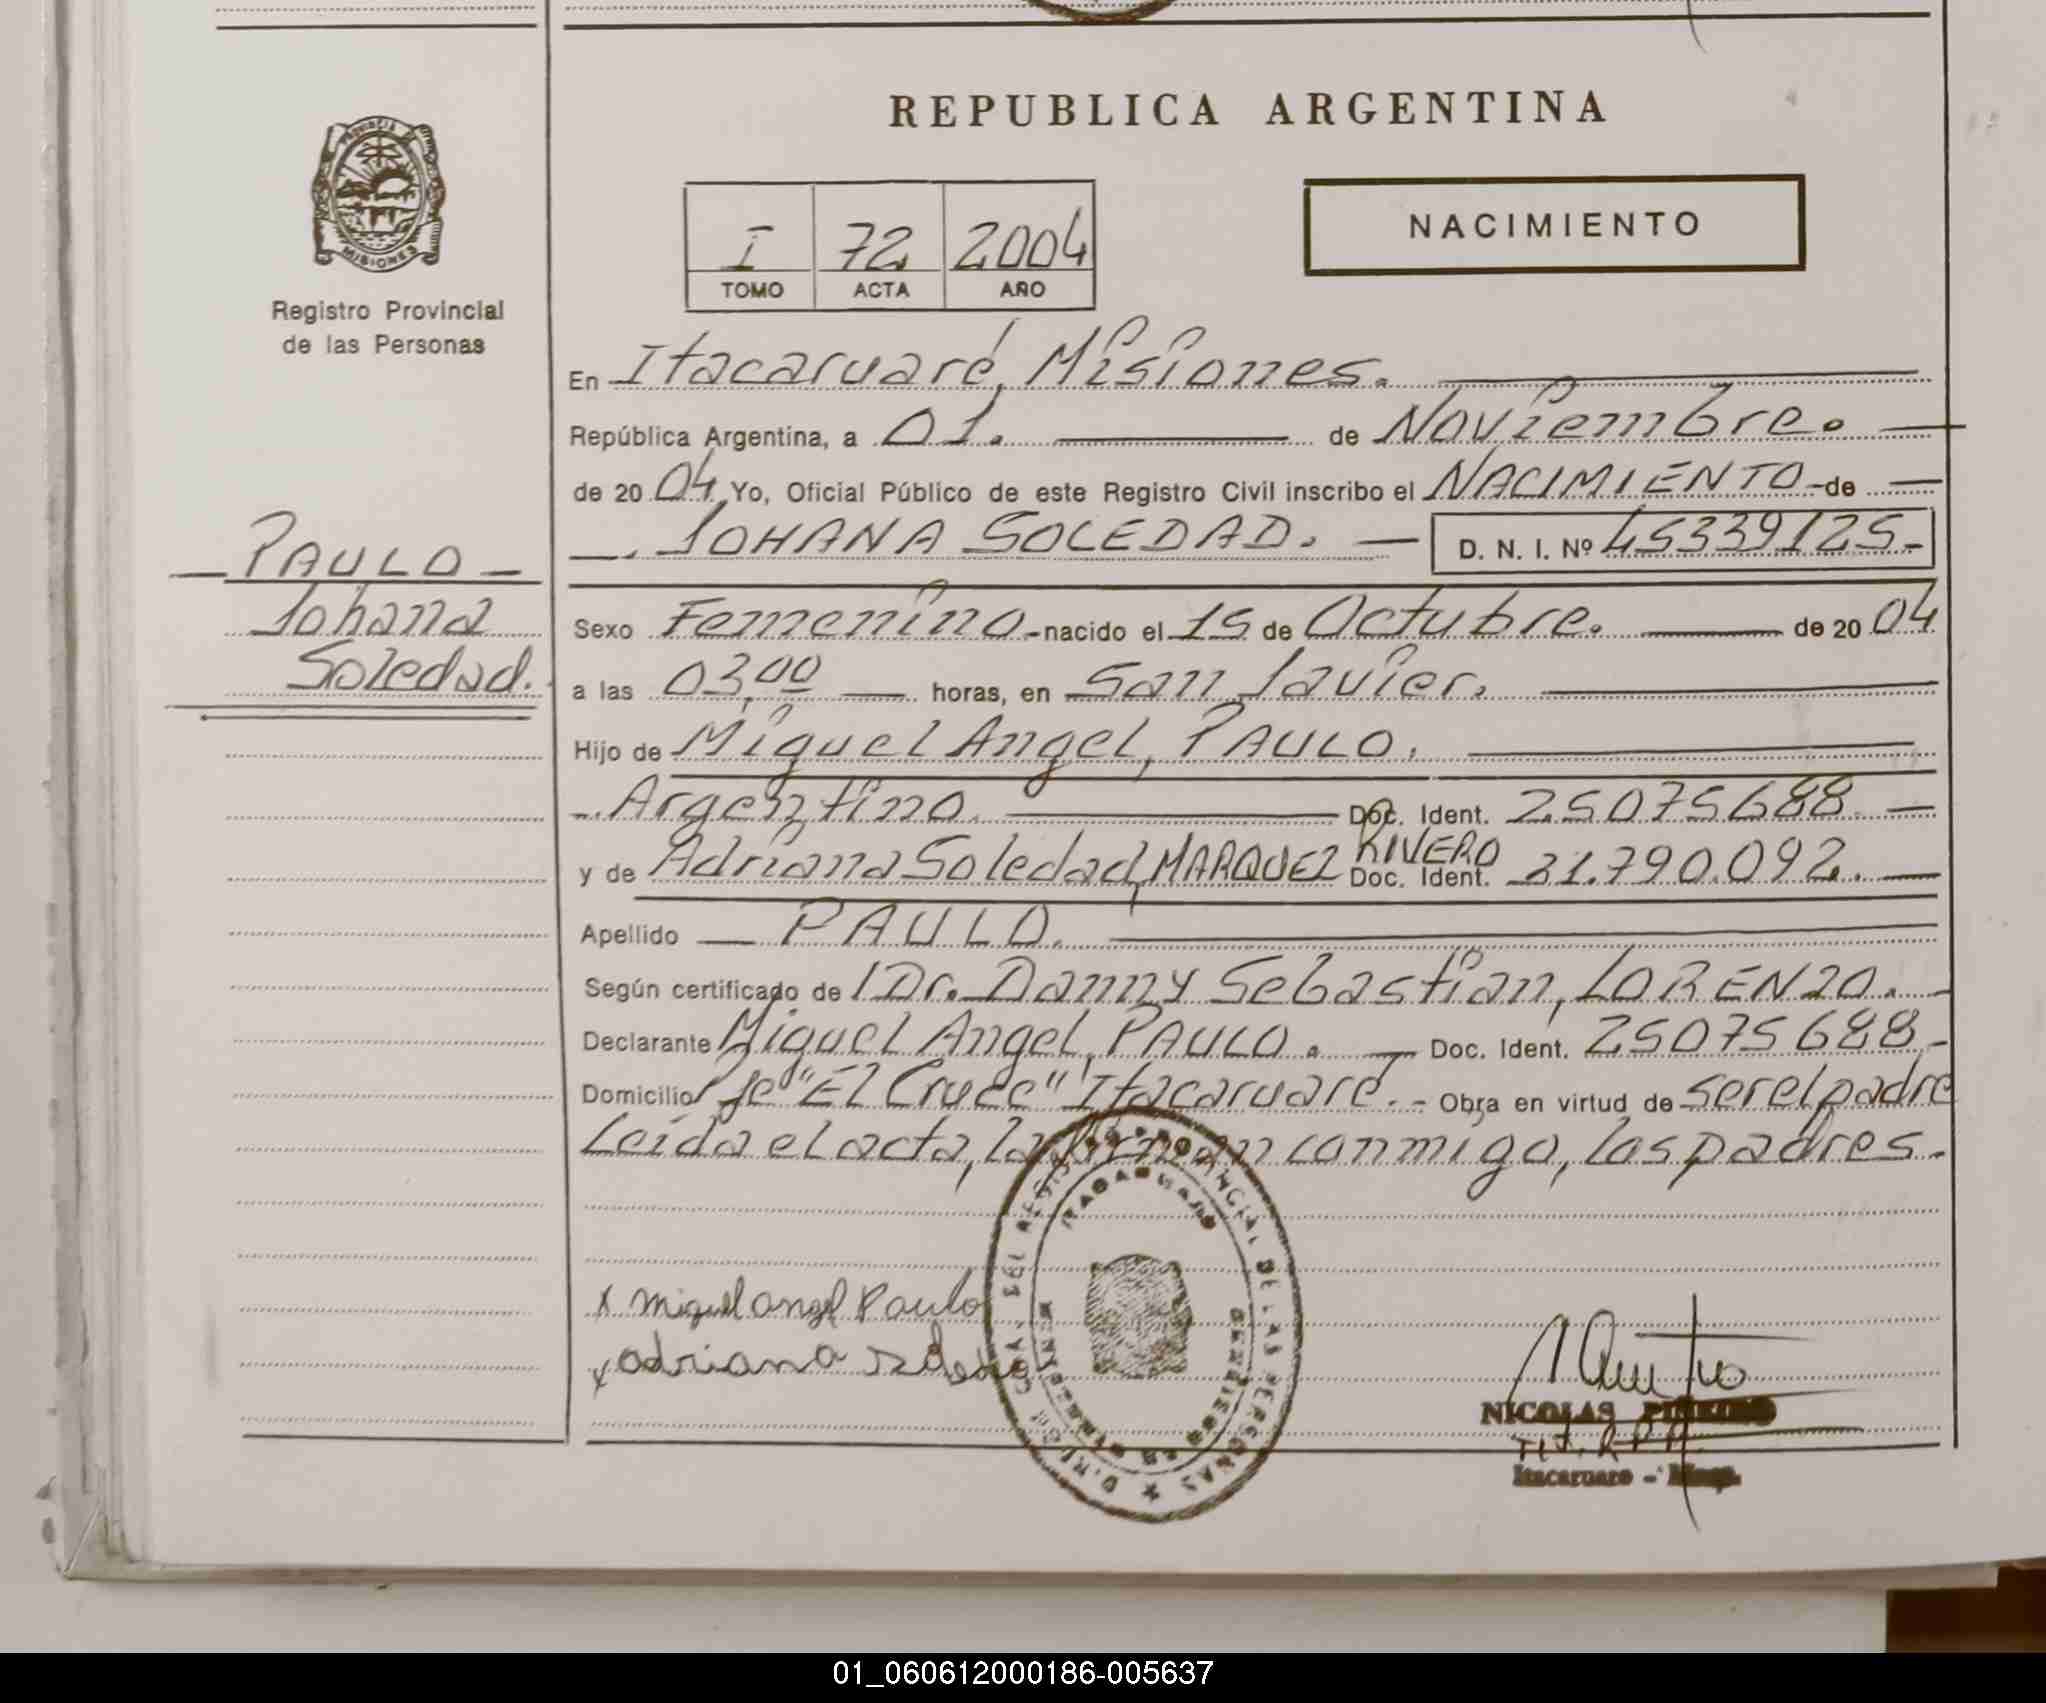 REPUBLICA ARGENTINA
PROVINCIA DE
MISIONES
Registro Provincial
de las Personas
I 72 2004
TOMO ACTA AÑO
NACIMIENTO
En Itacaruaré, Misiones.
República Argentina, a 01. de Noviembre.
de 20 04 Yo, Oficial Público de este Registro Civil inscribo el NACIMIENTO de
JOHANA SOLEDAD. D. N. I. Nº 45339125-
PAULO
Johana
Soledad.
Sexo Femenino nacido el 15 de Octubre. de 20 04
a las 03,00 horas, en San Javier.
Hijo de Miguel Angel, PAULO.
Argentino. Doc. Ident. 25075688
y de Adriana Soledad, MARQUEZ RIVERO Doc. Ident. 31.790.092.
Apellido PAULO.
Según certificado de Dr. Danny Sebastian, LORENZO.
Declarante Miguel Angel, PAULO. Doc. Ident. 25075688-
Domicilio Pje "El Cruce" Itacaruaré. - Obra en virtud de ser el padre
Leída el acta, la firman conmigo, los padres.
x miguel angel Paulo
x adriana
NICOLAS
Itacaruare -
01_060612000186-005637